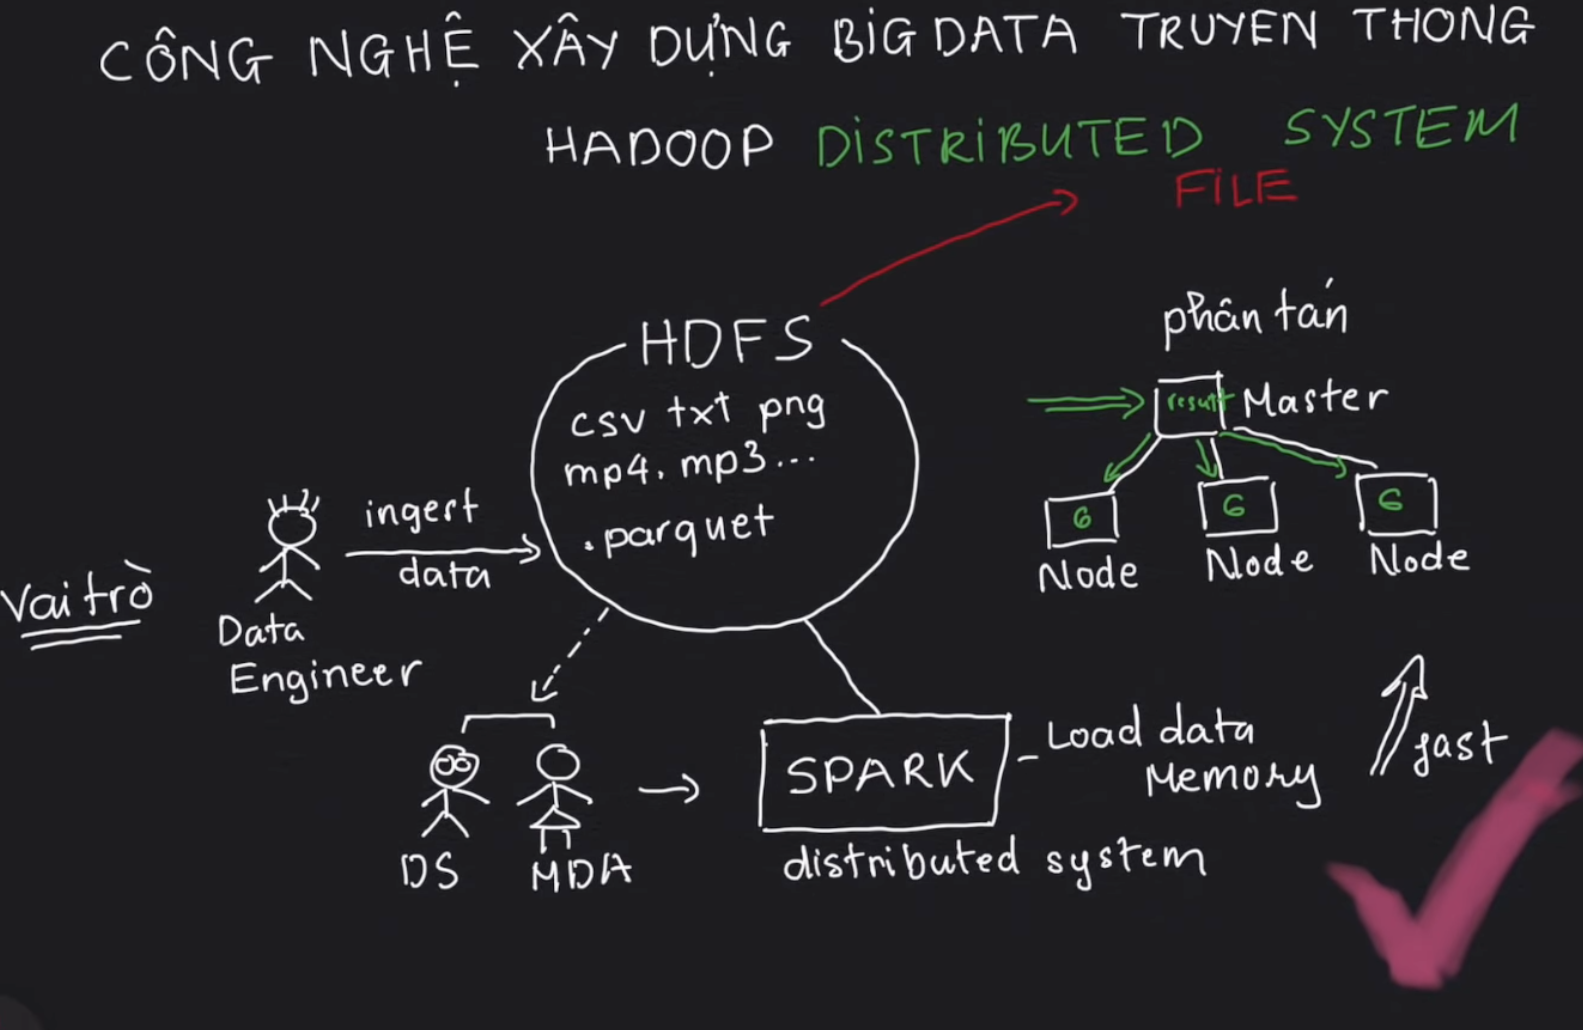 CÔNG NGHỆ XÂY DỰNG BIG DATA TRUYEN THONG
HADOOP DISTRIBUTED SYSTEM
FILE
HDFS
csv txt png
mp4, mp3...
.parquet
phân tán
result Master
6 6 6
Node Node Node
ingest
data
Vai trò
Data
Engineer
DS MDA
SPARK
- Load data
Memory
fast
distributed system